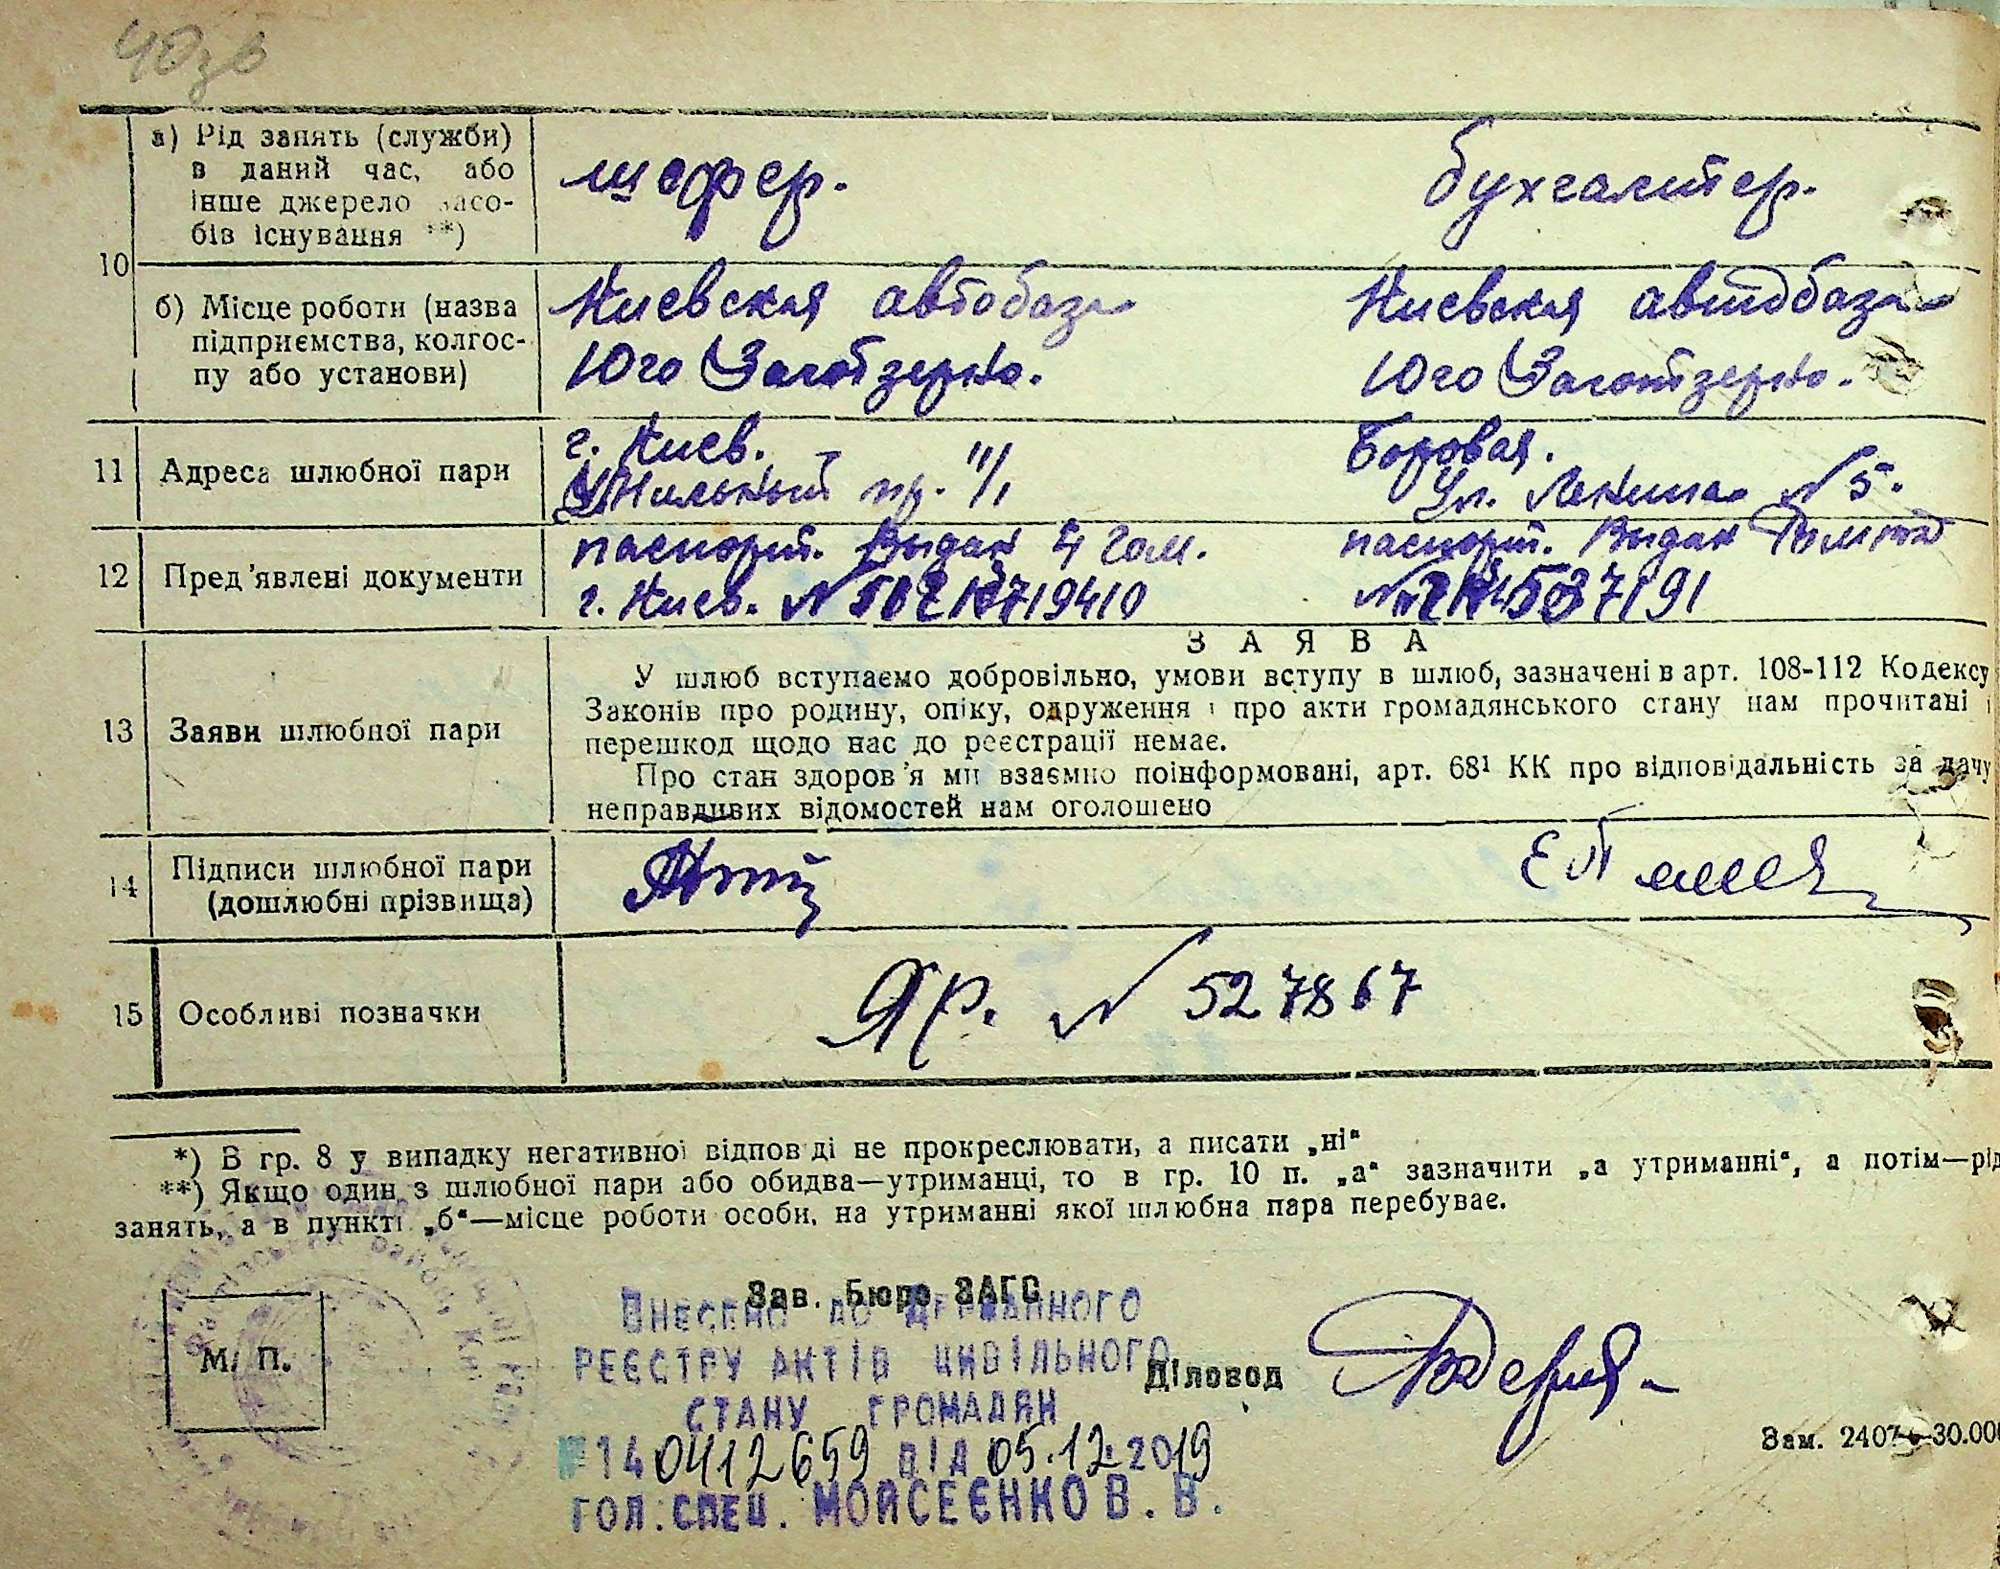 40зв
а) Рід занять (служби)
в даний час, або
інше джерело засо-
бів існування **)
шофер.
бухгалтер.
10
б) Місце роботи (назва
підприємства, колгос-
пу або установи)
Киевская автобаза
Юго Заготзерно.
Киевская автобаза
Юго Заготзерно.
11
Адреса шлюбної пари
г. Киев.
пр. 11/1
Боровая.
Ул. Ленина №5.
12
Пред'явлені документи
паспорт. Выдан 4 гом.
г. Киев. №
паспорт. Выдан
13
Заяви шлюбної пари
ЗАЯВА
У шлюб вступаємо добровільно, умови вступу в шлюб, зазначені в арт. 108-112 Кодексу
Законів про родину, опіку, одруження і про акти громадянського стану нам прочитані і
перешкод щодо нас до реєстрації немає.
Про стан здоров'я ми взаємно поінформовані, арт. 68¹ КК про відповідальність за дачу
неправдивих відомостей нам оголошено
14
Підписи шлюбної пари
(дошлюбні прізвища)
15
Особливі позначки
ЯР. № 527867
*) В гр. 8 у випадку негативної відповіді не прокреслювати, а писати „ні“
**) Якщо один з шлюбної пари або обидва—утриманці, то в гр. 10 п. „а“ зазначити „а утриманні“, а потім—рід
занять, а в пункті „б“—місце роботи особи, на утриманні якої шлюбна пара перебуває.
Зав. Бюро ЗАГС
ВНЕСЕНО ДО ДЕРЖАВНОГО
РЕЄСТРУ АКТІВ ЦИВІЛЬНОГО
СТАНУ ГРОМАДЯН
№140412659 ВІД 05.12.2019
ГОЛ.СПЕЦ. МОЙСЕЄНКО В. В.
М. П.
Діловод
Зам. 2407—30.000